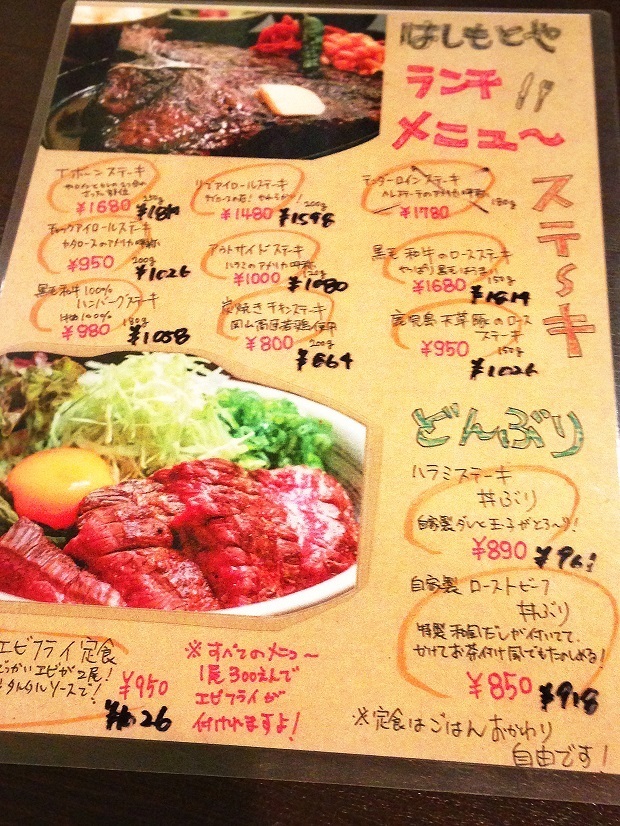 はしもとや
ランチ
メニュ〜
ステ〜キ
Tボーンステーキ
¥1680
リブアイロールステーキ
200g
¥1480 ¥1598
テンダーロインステーキ
180g
¥1780
チャックアイロールステーキ
カタロースのアメリカ呼称
200g
¥950 ¥1026
アウトサイドステーキ
ハラミのアメリカ呼称
¥1000 ¥1080
黒毛和牛のロースステーキ
やっぱり黒毛
150g
¥1680 ¥1814
黒毛和牛100%
ハンバーグステーキ
180g
¥980 ¥1058
炭焼きチキンステーキ
岡山高原若鶏使用
200g
¥800 ¥864
鹿児島 天草豚のロース
ステーキ
150g
¥950 ¥1026
どんぶり
ハラミステーキ
丼ぶり
自家製ダレと玉子がとろ〜り!
¥890
自家製 ローストビーフ
丼ぶり
特製 和風だしが付いてて
かけてお茶付け風でもたのしめる!
¥850 ¥918
エビフライ定食
エビが2尾!
タルタルソースで!
¥950
¥1026
※すべてのメニュ〜
1尾300えんで
エビフライが
付けれますよ!
※定食はごはんおかわり
自由です!